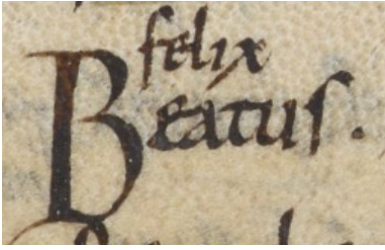 felix
Beatus.